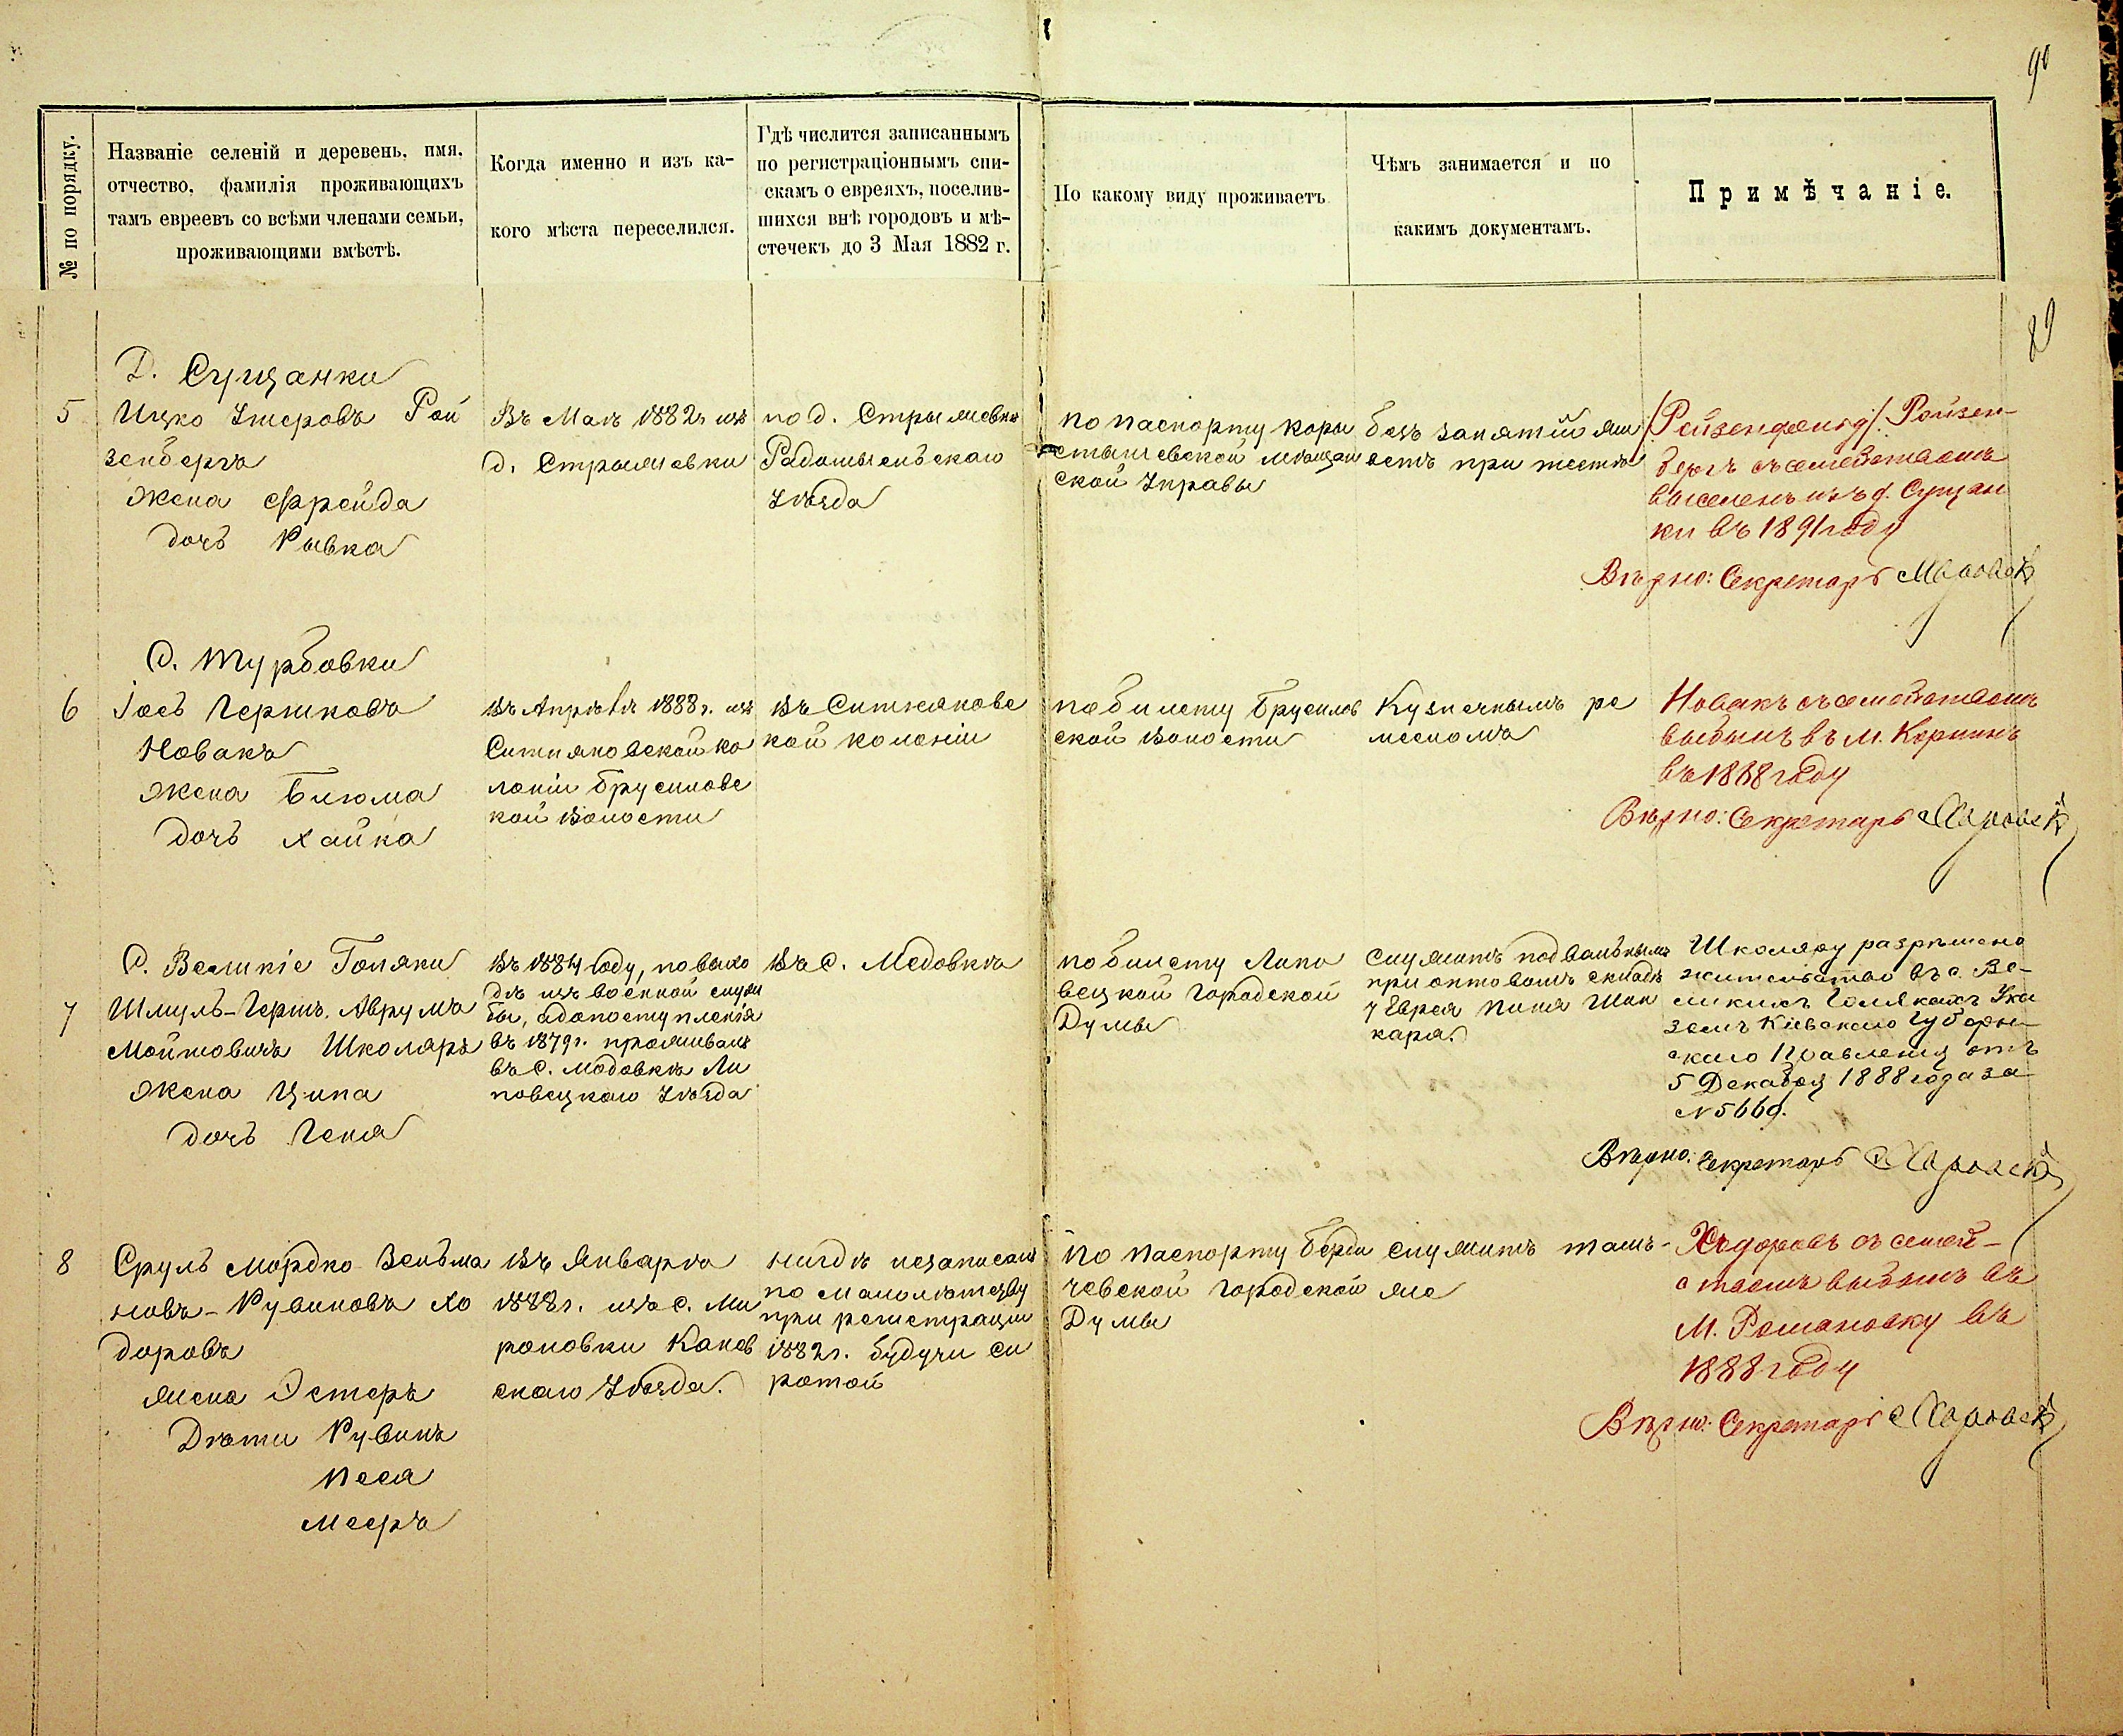 90
№ по порядку.
Названіе селеній и деревень, имя,
отчество, фамилія проживающихъ
тамъ евреевъ со всѣми членами семьи,
проживающими вмѣстѣ.
Когда именно и изъ ка-
кого мѣста переселился.
Гдѣ числится записаннымъ
по регистраціоннымъ спи-
скамъ о евреяхъ, поселив-
шихся внѣ городовъ и мѣ-
стечекъ до 3 Мая 1882 г.
По какому виду проживаетъ
Чѣмъ занимается и по
какимъ документамъ.
Примѣчаніе.
89
Д. Сущанки
5
Ицко Умеровъ Рой
зенбергъ
жена Фрейда
дочь Рывка
Въ Маѣ 1882 г. изъ
д. Строиловки
по д.
Радомысльскаго
Уѣзда
по паспорту Коро
стышевской мѣщан
ской Управы
безъ занятій жи
ветъ при тестѣ
/Рейзенфельд/. Ройзен-
бергъ съ семействомъ
выселенъ изъ д. Сущан
ки въ 1891 году
Вѣрно: Секретарь
С. Турбовки
6
Іосъ Гершковъ
Новакъ
жена Блюма
дочь Хайка
Въ Апрѣлѣ 1888 г. изъ
Ситняковской ко
лоніи Брусилове
кой Волости
Въ Ситняковс
кой колоніи
по билету Брусилов
ской Волости
Кузнечнымъ ре
месломъ
Новакъ съ семействомъ
выбылъ въ м. Корнинъ
въ 1888 году
Вѣрно: Секретарь
С. Великіе Голяки
7
Шмуль-Гершъ. Аврумъ
Мошковичъ Школяръ
жена Ципа
дочь Геня
Въ 1884 году, по выхо
дѣ изъ военной служ
бы, а до поступленія
въ 1879 г. проживалъ
въ с. Медовкѣ Ли
повецкаго Уѣзда
Въ С. Медовкѣ
по билету Липо
вецкой Городской
Думы
Служитъ подвальнымъ
при оптовомъ складѣ
у Еврея Пиня Шин
каря.
Школяру разрѣшено
жительство въ с. Ве-
ликихъ Голякахъ Ука
зомъ Кіевскаго Губерн-
скаго Правленія отъ
5 Декабря 1888 года за
№ 5669.
Вѣрно: Секретарь
8
Сруль Мордко Зельма
новъ-Рувиновъ Хо
доровъ
жена Эстеръ
Дѣти Рувинъ
Песя
Мееръ
Въ Январѣ
1888 г. изъ с. Ми
роновки Канев
скаго Уѣзда.
нигдѣ незаписанъ
по малолѣтству
при регистраціи
1882 г. будучи си
ротой
по паспорту Берди
чевской Городской
Думы
Служитъ тамъ-
же
Ходоровъ съ семей-
ствомъ выбылъ въ
М. Романовку въ
1888 году
Вѣрно: Секретарь